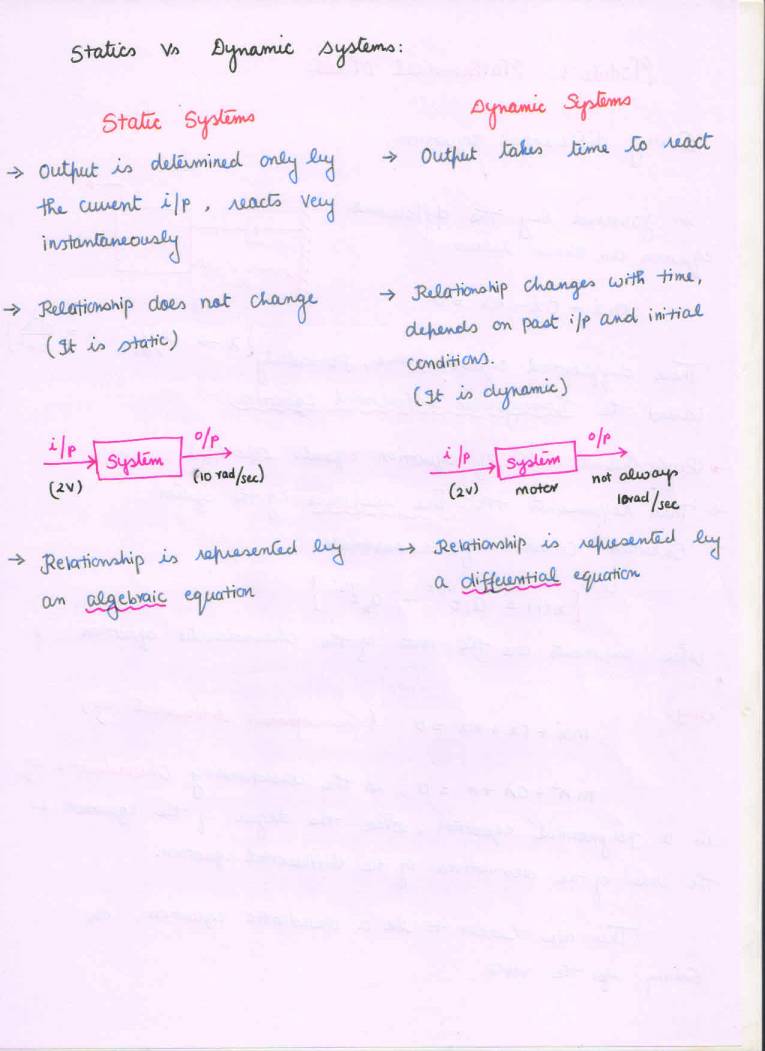 Statics Vs Dynamic systems:
Static Systems
→ Output is determined only by
the current i/p, reacts very
instantaneously
→ Relationship does not change
(It is static)
i/p System o/p
(2V) (10 rad/sec)
→ Relationship is represented by
an algebraic equation
Dynamic Systems
→ Output takes time to react
→ Relationship changes with time,
depends on past i/p and initial
conditions.
(It is dynamic)
i/p System o/p
(2V) motor not always
10rad/sec
→ Relationship is represented by
a differential equation